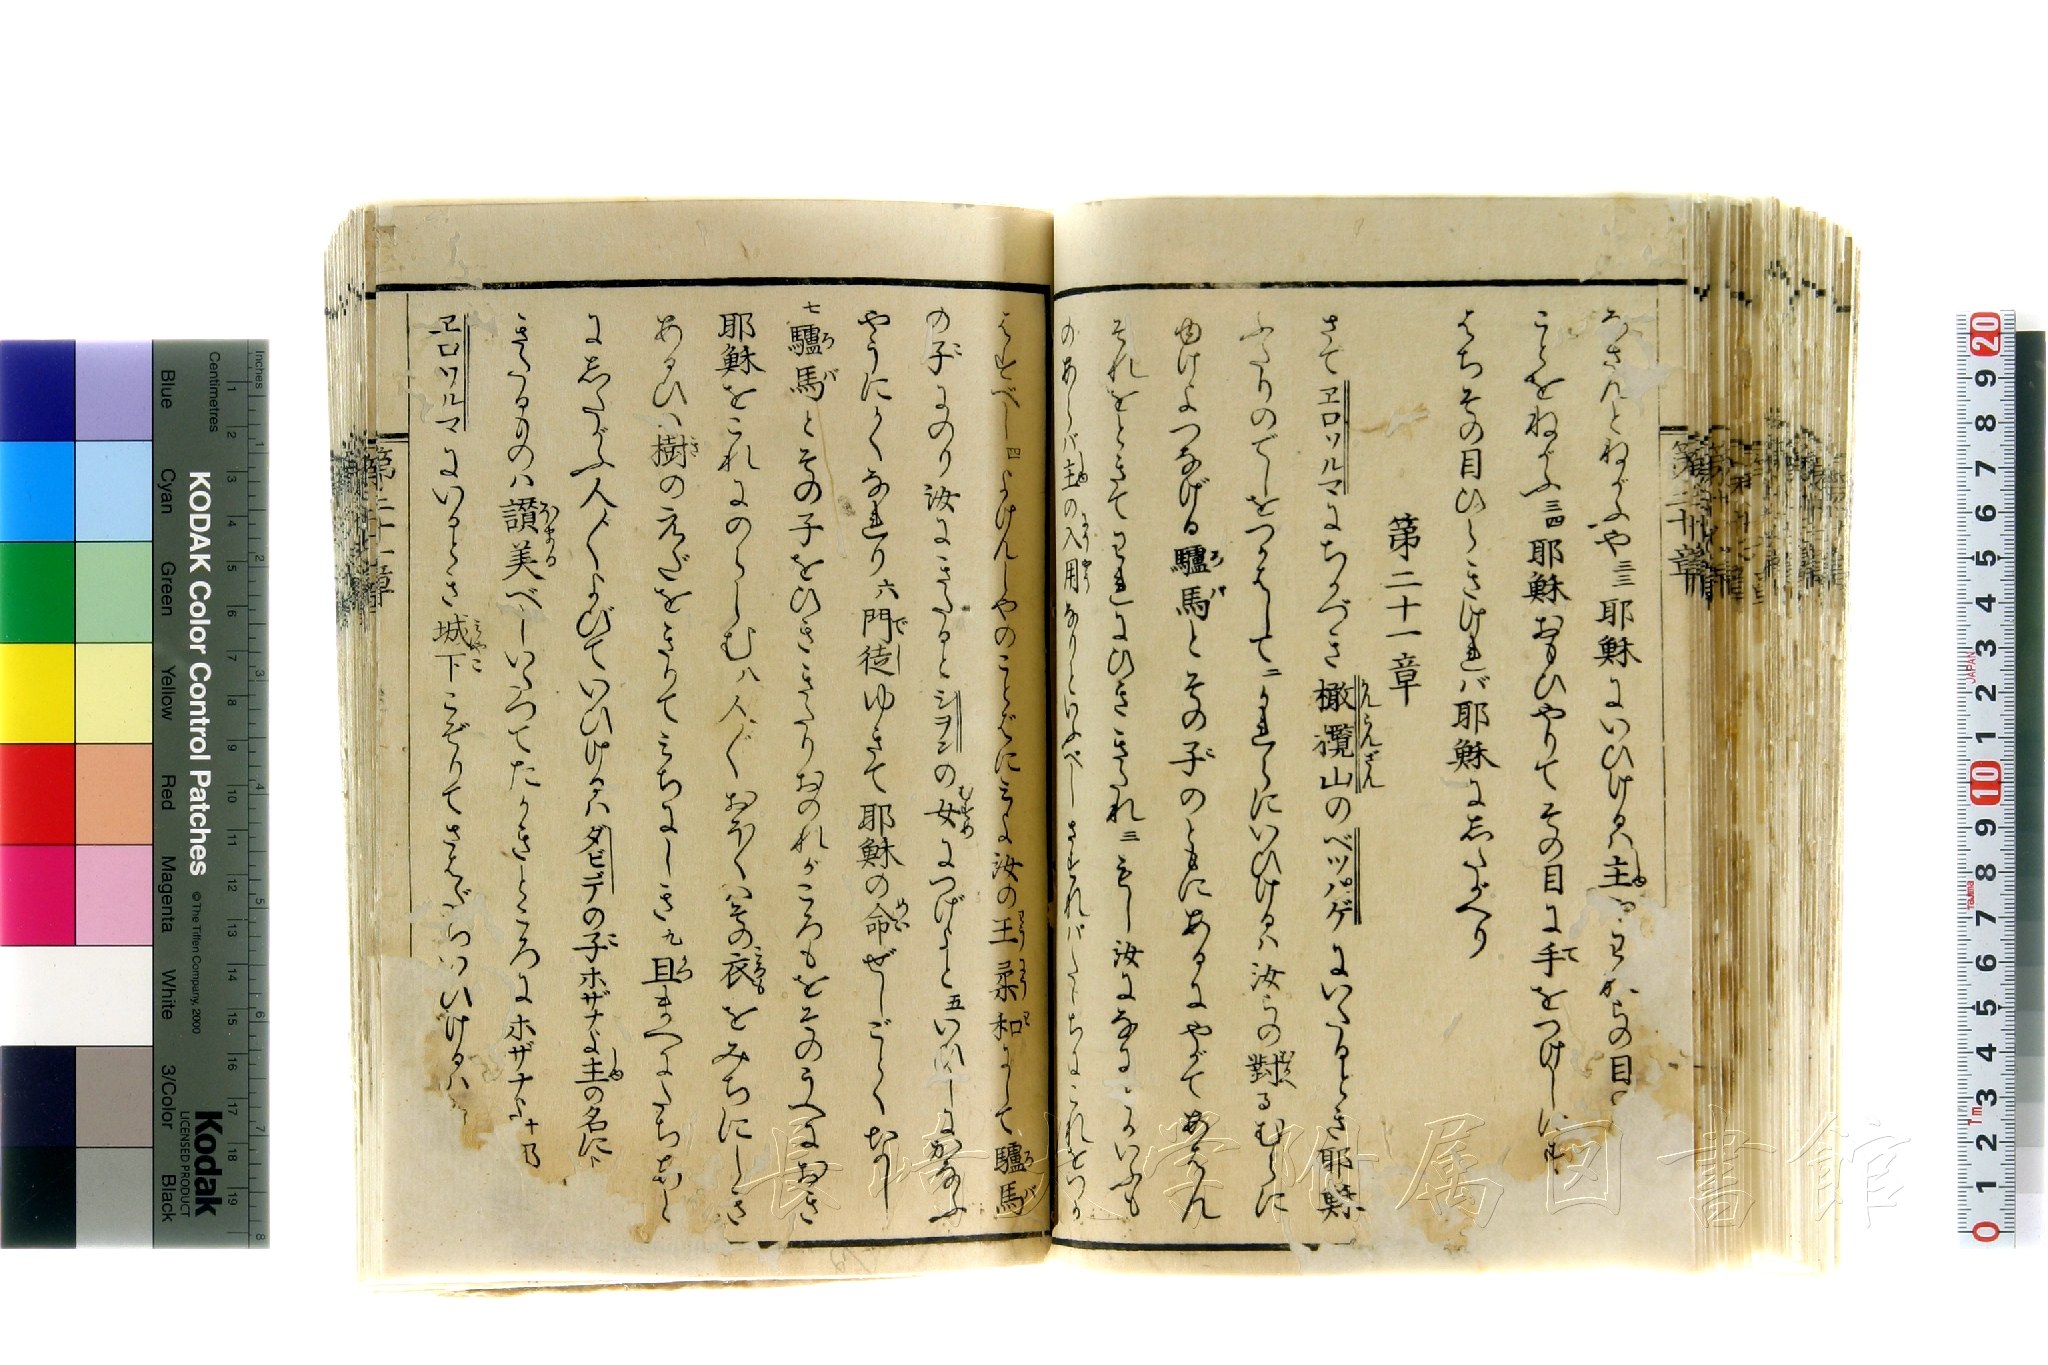 なさんとねがふや三三耶穌にいひけるハ主よわれらの目
ことをねがふ三四耶穌おもひやりてその目に手をつけしに
はちその目ひらきけれバ耶穌にしたがへり
第二十一章
さてヱロソルマにちかづき橄欖山のベツパゲにいたるとき耶穌
ふたりのでしをつかはして二かれらにいひけるハ汝らの對るむらに
ゆけよつなげる驢馬とその子のともにあるにやがてあはん
それをときてわれにひききたれ三もし汝になに
のあらバ主の入用なりといふべしさすれバたちまちこれをつか
はすべし四よげんしやのことばにみよ汝の王柔和にして驢馬
の子にのり汝にきたるとシヲンの女につげよと五いひしにかなふ
やうにかくなれり六門徒ゆきて耶穌の命ぜしごとくなし
七驢馬とその子をひききたりおのれがころもをそのうへにおき
耶穌をこれにのらしむ八人々おほくハその衣をみちにしき
あるひハ樹のえだをきりてみちにしき九且まへにたちあと
にしたがふ人々よびていひけるハダビデの子ホザナよ主の名に
きたるものハ讃美べしいたつてたかきところにホザナよ十
ヱロソルマにいるとき城下こぞりてさわだちいひけるハ
第二十章
第二十一章
長崎大学附属図書館
KODAK Color Control Patches
© The Tiffen Company, 2000
Kodak
LICENSED PRODUCT
Inches
Centimetres
Blue
Cyan
Green
Yellow
Red
Magenta
White
3/Color
Black